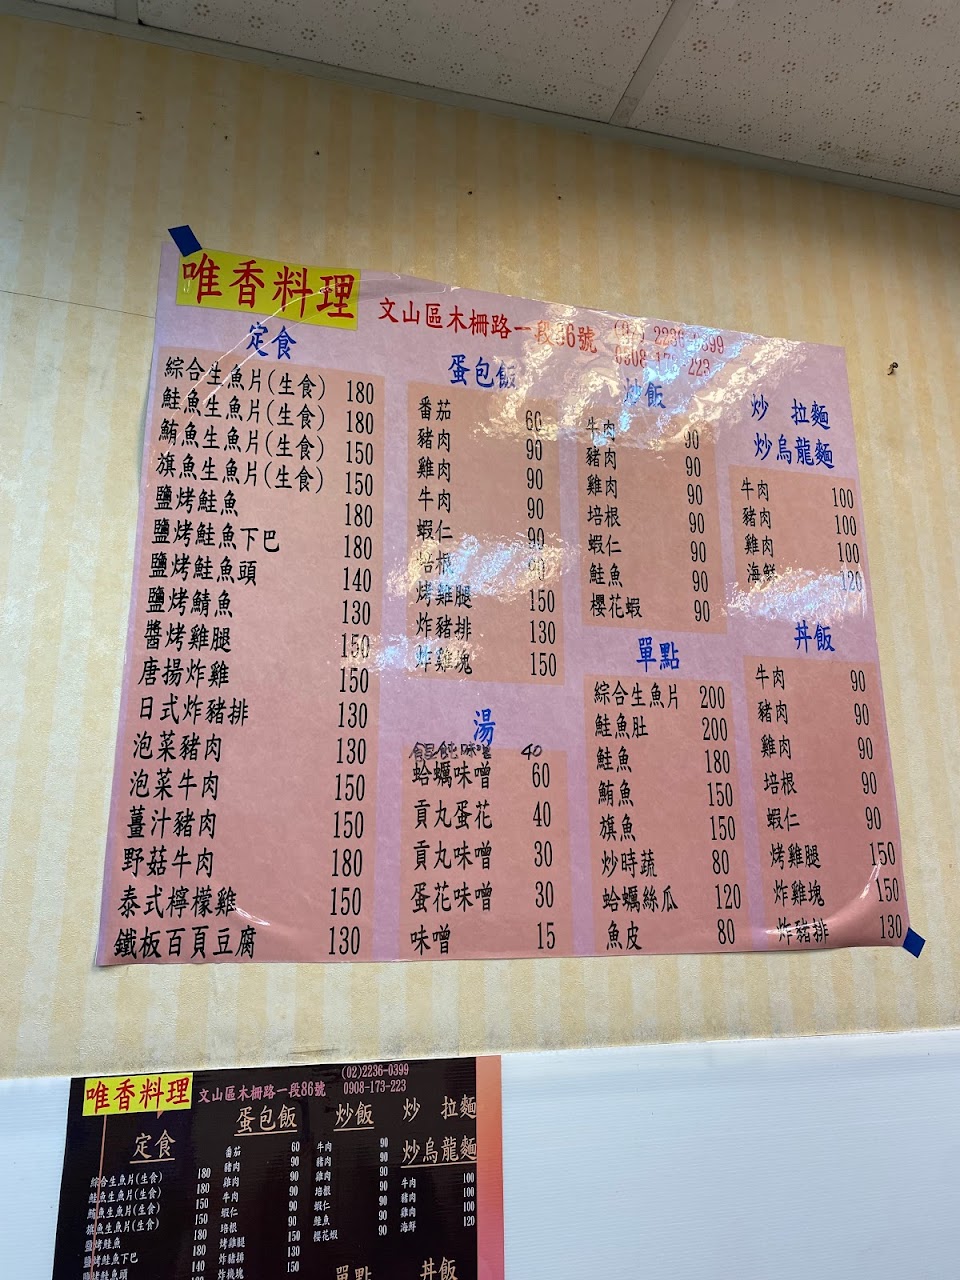 唯香料理
文山區木柵路一段86號
(02) 2236-0399
0908-173-223
定食
綜合生魚片(生食) 180
鮭魚生魚片(生食) 180
鮪魚生魚片(生食) 150
旗魚生魚片(生食) 150
鹽烤鮭魚 180
鹽烤鮭魚下巴 180
鹽烤鮭魚頭 140
鹽烤鯖魚 130
醬烤雞腿 150
唐揚炸雞 150
日式炸豬排 130
泡菜豬肉 130
泡菜牛肉 150
薑汁豬肉 150
野菇牛肉 180
泰式檸檬雞 150
鐵板百頁豆腐 130
蛋包飯
番茄 60
豬肉 90
雞肉 90
牛肉 90
蝦仁 90
培根 90
烤雞腿 150
炸豬排 130
炸雞塊 150
湯
餛飩味噌 40
蛤蠣味噌 60
貢丸蛋花 40
貢丸味噌 30
蛋花味噌 30
味噌 15
炒飯
牛肉 90
豬肉 90
雞肉 90
培根 90
蝦仁 90
鮭魚 90
櫻花蝦 90
單點
綜合生魚片 200
鮭魚肚 200
鮭魚 180
鮪魚 150
旗魚 150
炒時蔬 80
蛤蠣絲瓜 120
魚皮 80
炒 拉麵
炒烏龍麵
牛肉 100
豬肉 100
雞肉 100
海鮮 120
丼飯
牛肉 90
豬肉 90
雞肉 90
培根 90
蝦仁 90
烤雞腿 150
炸雞塊 150
炸豬排 130
唯香料理
文山區木柵路一段86號
(02)2236-0399
0908-173-223
定食
綜合生魚片(生食) 180
鮭魚生魚片(生食) 180
鮪魚生魚片(生食) 150
旗魚生魚片(生食) 150
鹽烤鮭魚 180
鹽烤鮭魚下巴 180
鹽烤鮭魚頭 140
蛋包飯
番茄 60
豬肉 90
雞肉 90
牛肉 90
蝦仁 90
培根 90
烤雞腿 150
炸豬排 130
炸雞塊 150
炒飯
牛肉 90
豬肉 90
雞肉 90
培根 90
蝦仁 90
鮭魚 90
櫻花蝦 90
單點
炒 拉麵
炒烏龍麵
牛肉 100
豬肉 100
雞肉 100
海鮮 120
丼飯